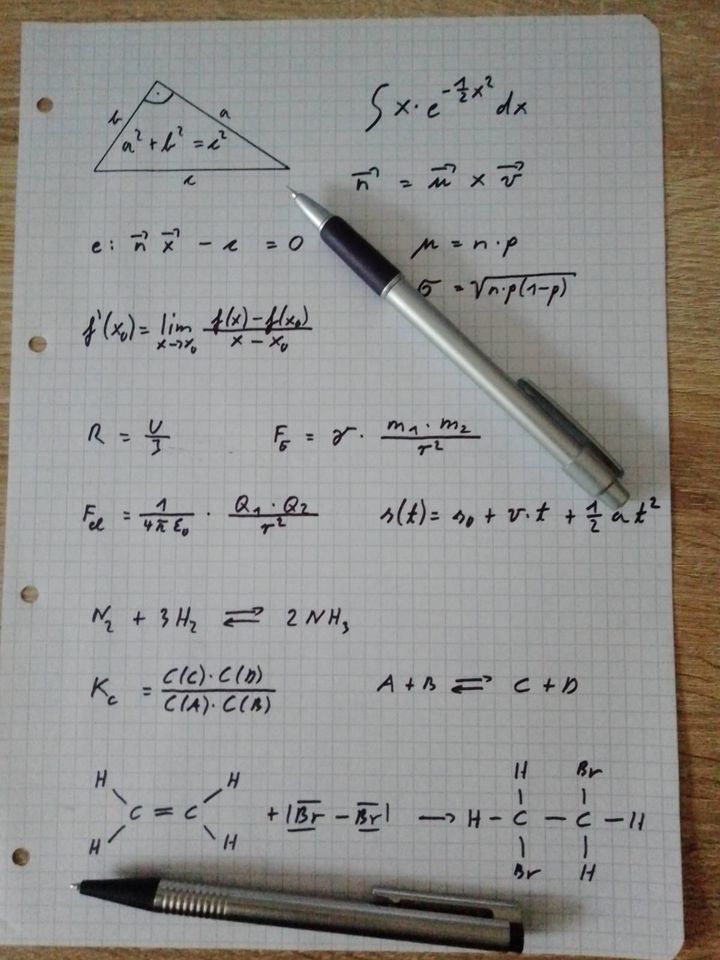 b a
a² + b² = c²
c
∫ x · e^(-1/2 x²) dx
n⃗ = u⃗ × v⃗
e: n⃗ x⃗ - c = 0
μ = n · p
σ = √(n·p(1-p))
f'(x₀) = lim x→x₀ (f(x) - f(x₀))/(x - x₀)
R = U/I
F_G = γ · (m₁ · m₂)/r²
F_el = 1/(4πε₀) · (Q₁ · Q₂)/r²
s(t) = s₀ + v·t + 1/2 a t²
N₂ + 3H₂ ⇌ 2NH₃
K_c = (C(C)·C(D))/(C(A)·C(B))
A + B ⇌ C + D
H H H Br
C = C + |Br - Br| → H - C - C - H
H H Br H